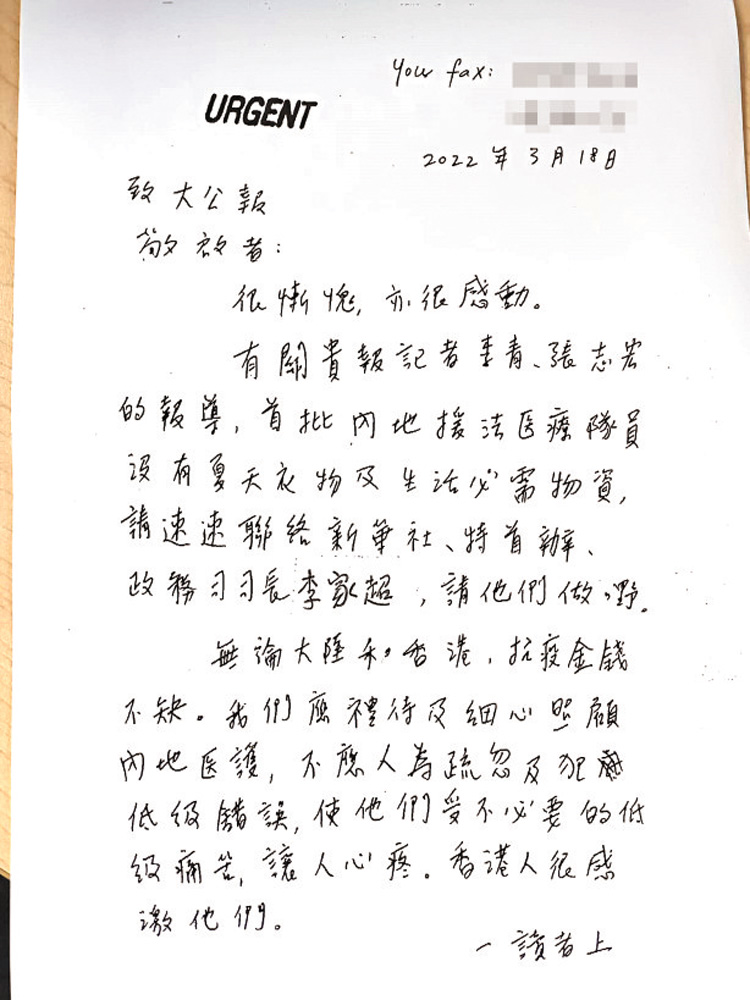 Your fax:
URGENT
2022年3月18日
致大公報
敬啟者:
很慚愧,亦很感動。
有關貴報記者李青、張志宏
的報導,首批內地援法医療隊員
沒有夏天衣物及生活必需物資,
請速速聯絡新華社、特首辦、
政務司司長李家超,請他們做嘢。
無論大陸和香港,抗疫金錢
不缺。我們應禮待及細心照顧
內地医護,不應人為疏忽及犯
低级錯誤,使他們受不必要的低
级痛苦,讓人心疼。香港人很感
激他們。
一讀者上